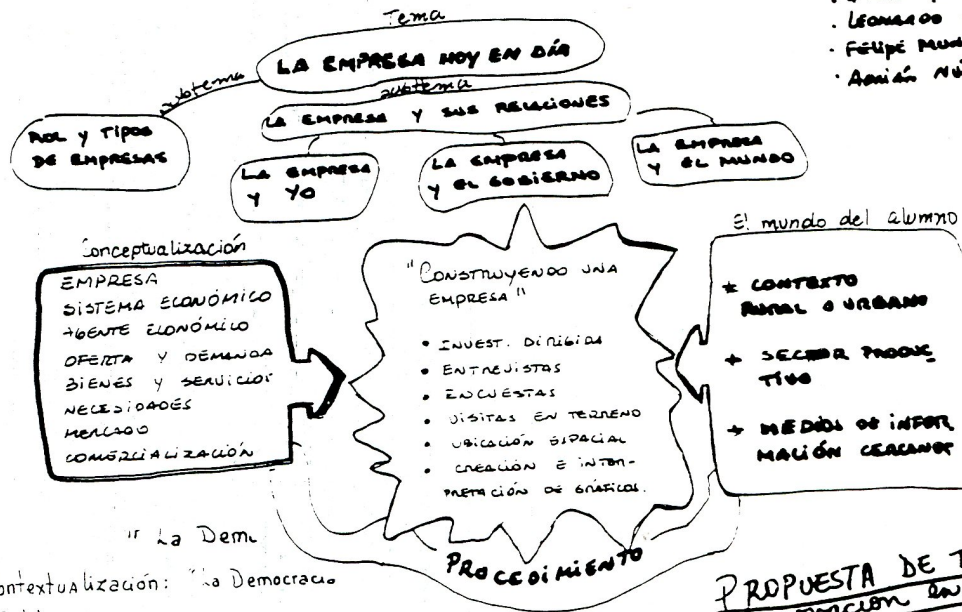 Tema
LA EMPRESA HOY EN DÍA
subtema
subtema
LA EMPRESA Y SUS RELACIONES
ROL Y TIPOS
DE EMPRESAS
LA EMPRESA
Y YO
LA EMPRESA
Y EL GOBIERNO
LA EMPRESA
Y EL MUNDO
· LEONARDO
· FELIPE
· Adrián
Conceptualización
EMPRESA
SISTEMA ECONÓMICO
AGENTE ECONÓMICO
OFERTA Y DEMANDA
BIENES Y SERVICIOS
NECESIDADES
MERCADO
COMERCIALIZACIÓN
"CONSTRUYENDO UNA
EMPRESA"
• INVEST. DIRIGIDA
• ENTREVISTAS
• ENCUESTAS
• VISITAS EN TERRENO
• UBICACIÓN ESPACIAL
• CREACIÓN E INTER-
PRETACIÓN DE GRÁFICOS.
El mundo del alumno
* CONTEXTO
RURAL O URBANO
* SECTOR PRODUC-
TIVO
* MEDIOS DE INFOR
MACIÓN CERCANOS
PROCEDIMIENTO
" La Dem
ontextualización: "La Democracia
PROPUESTA DE T